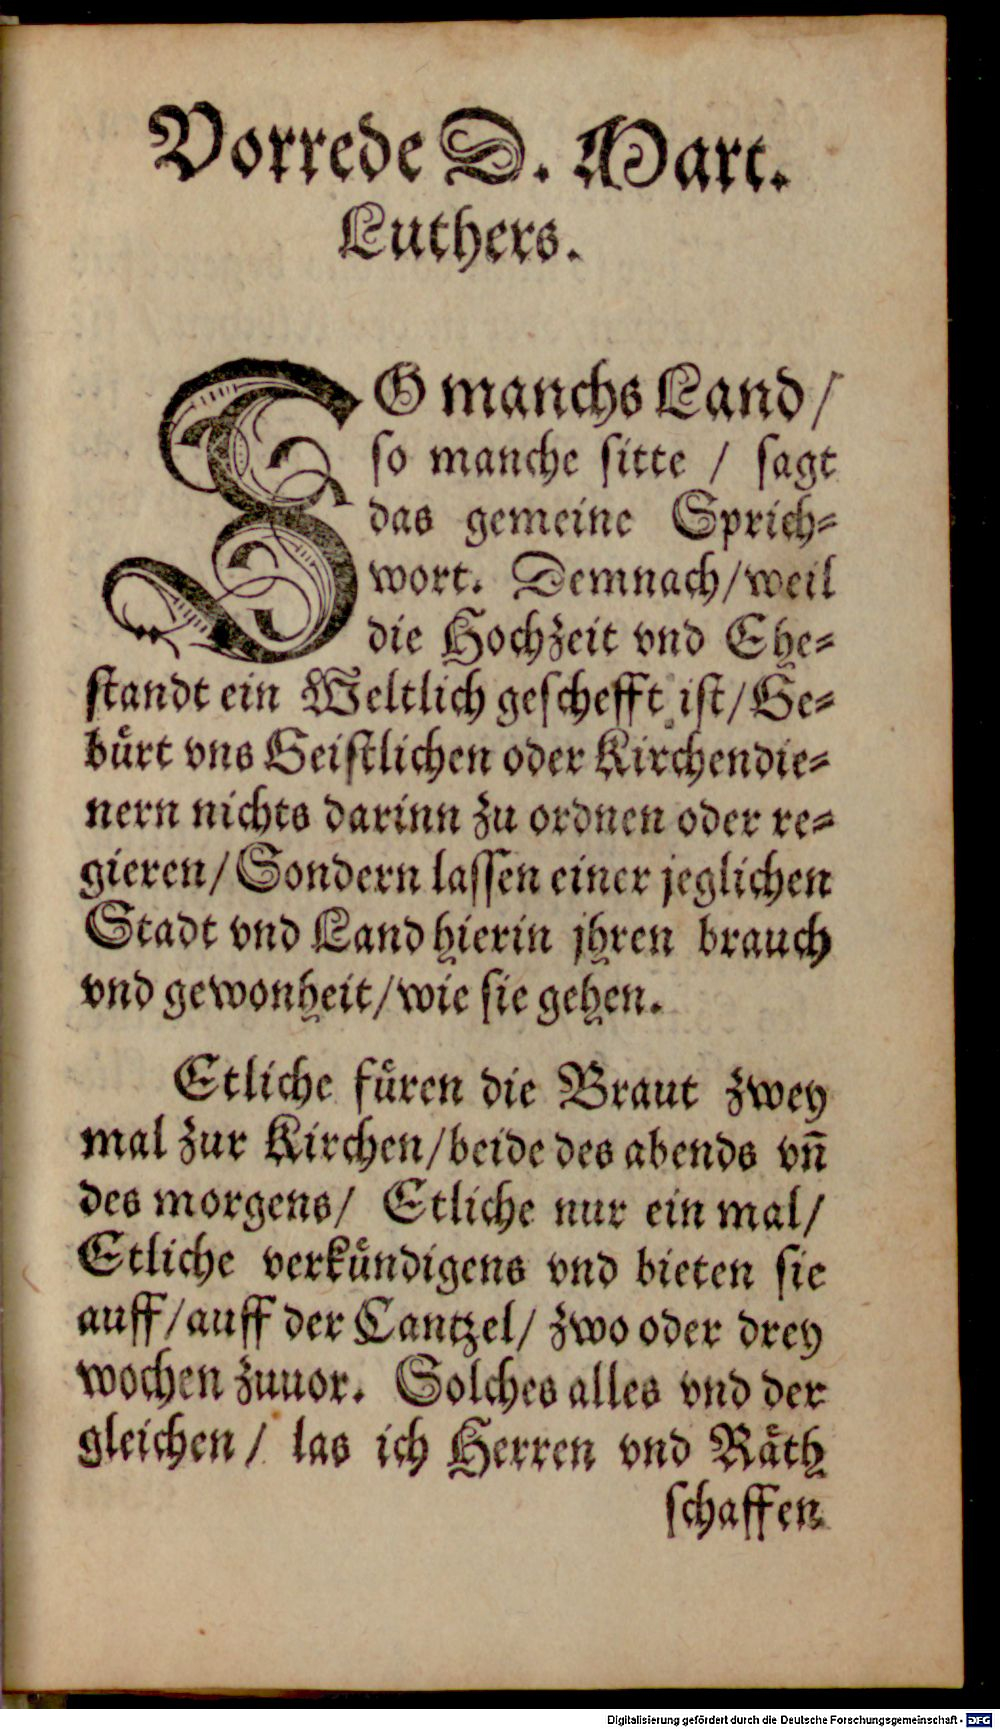 Vorrede D. Mart.
Luthers.
SO manchs Land /
so manche sitte / sagt
das gemeine Sprich⸗
wort. Demnach / weil
die Hochzeit vnd Ehe⸗
standt ein Weltlich geschefft ist / Ge⸗
bürt vns Geistlichen oder Kirchendie⸗
nern nichts darinn zu ordnen oder re⸗
gieren / Sondern lassen einer jeglichen
Stadt vnd Land hierin jhren brauch
vnd gewonheit / wie sie gehen.
Etliche füren die Braut zwey
mal zur Kirchen / beide des abends vn̄
des morgens / Etliche nur ein mal /
Etliche verkündigens vnd bieten sie
auff / auff der Cantzel / zwo oder drey
wochen zuuor. Solches alles vnd der
gleichen / las ich Herren vnd Räth
schaffen
Digitalisierung gefördert durch die Deutsche Forschungsgemeinschaft - DFG